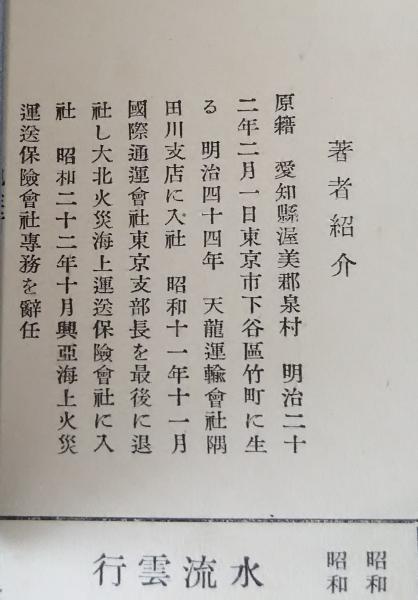 著者紹介
原籍　愛知縣渥美郡泉村　明治二十
二年二月一日東京市下谷區竹町に生
る　明治四十四年　天龍運輸會社隅
田川支店に入社　昭和十一年十一月
國際通運會社東京支部長を最後に退
社し大北火災海上運送保險會社に入
社　昭和二十二年十月興亞海上火災
運送保險會社專務を辭任
昭和
昭和
行雲流水